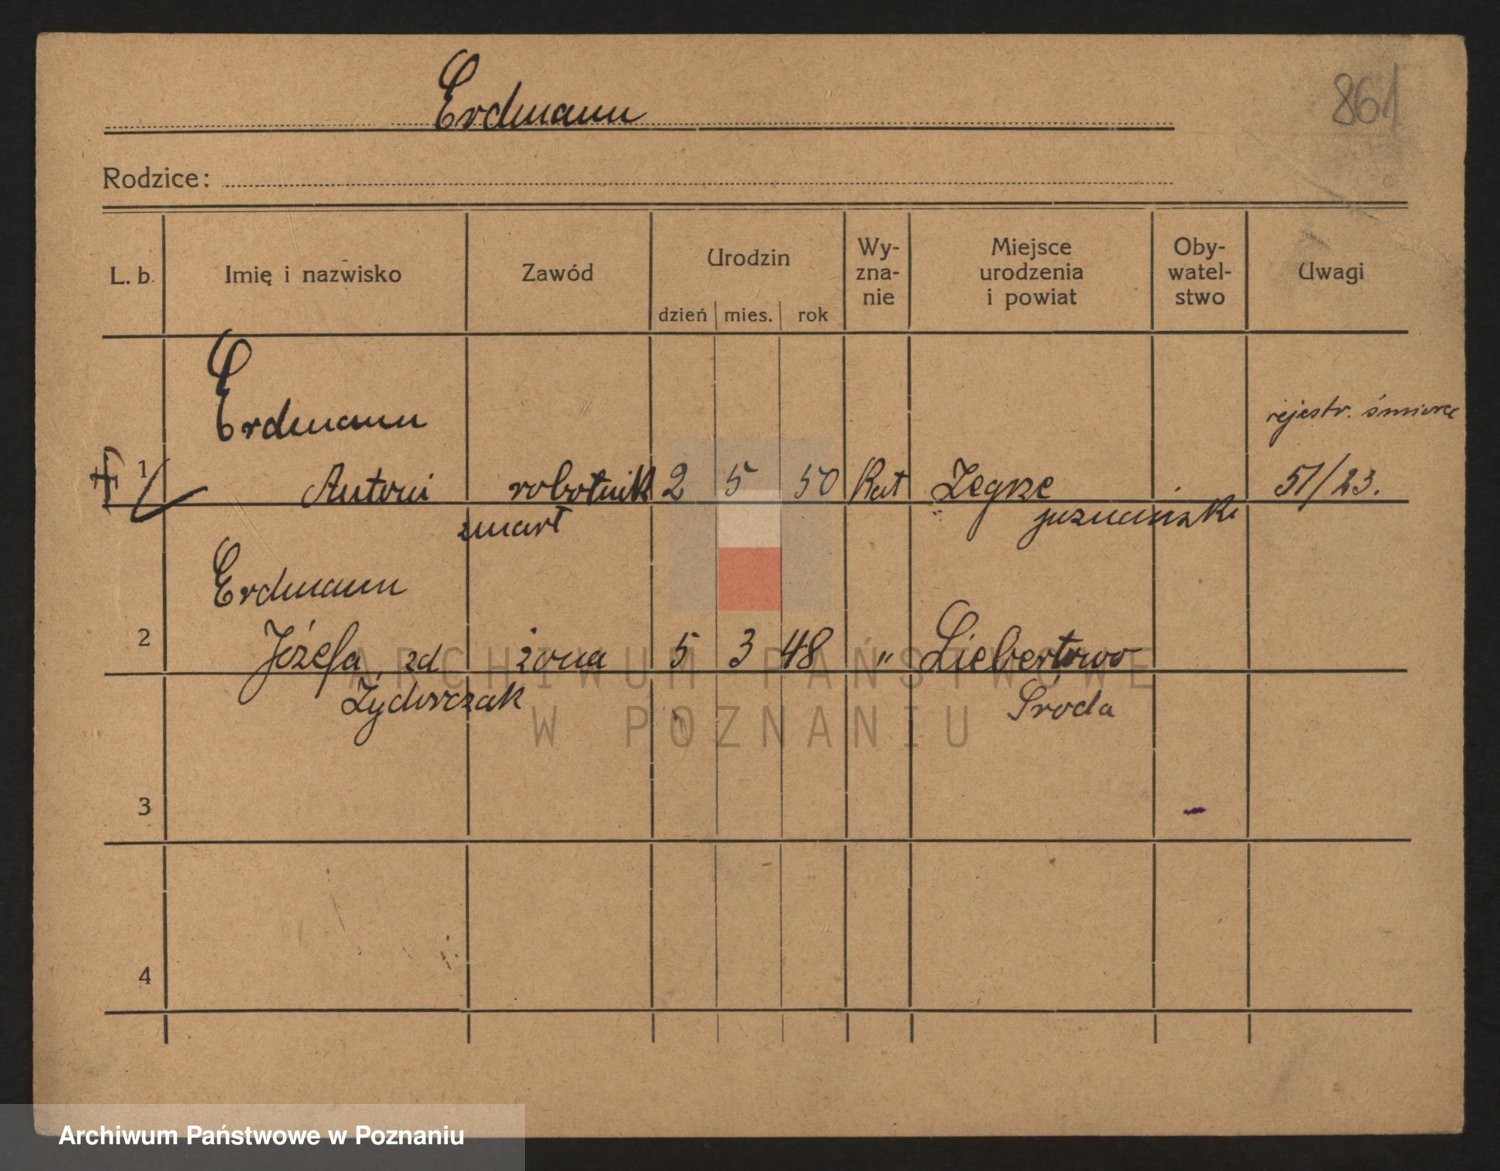 Erdmann
861
Rodzice:
L. b. Imię i nazwisko Zawód Urodzin Wy-zna-nie Miejsce urodzenia i powiat Oby-watel-stwo Uwagi
dzień mies. rok
Erdmann rejestr. śmierci
1 Antoni robotnik 2 5 50 Kat Zegrze 51/23.
zmarł
Erdmann
2 Józefa zd żona 5 3 48 " Liebertowo
Żydorczak Środa
3
4
ARCHIWUM PAŃSTWOWE
W POZNANIU
Archiwum Państwowe w Poznaniu